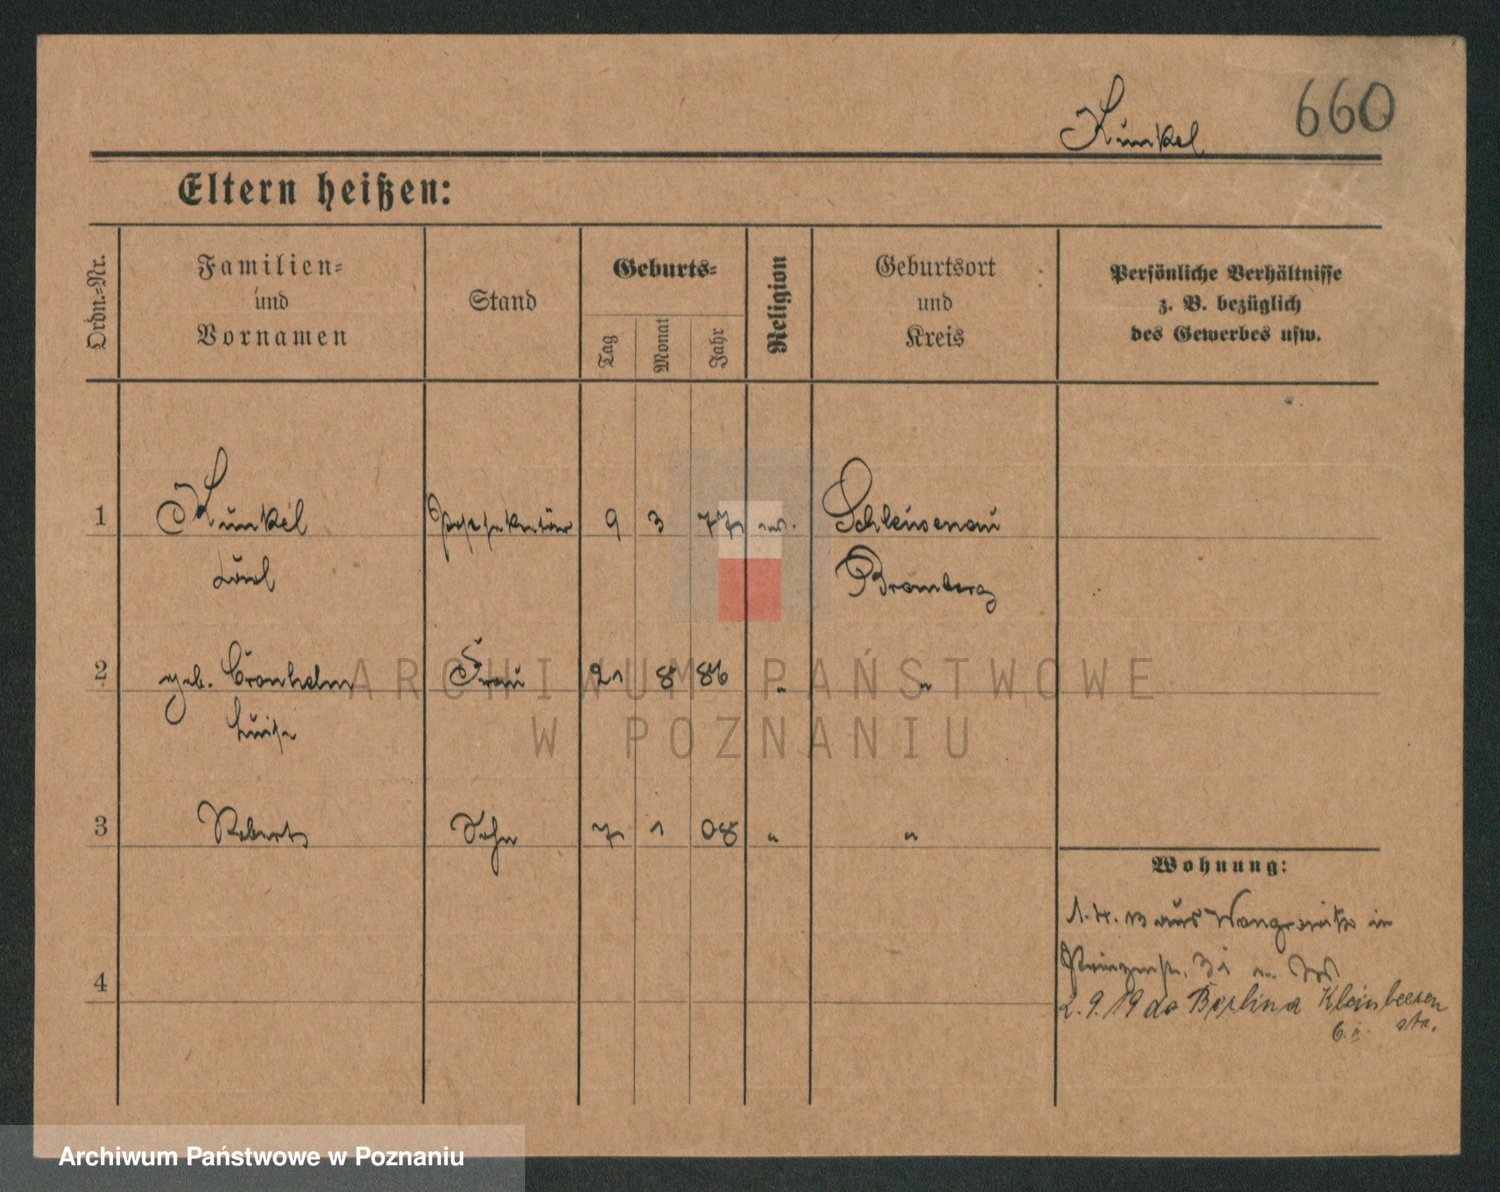 660
Kunkel
Eltern heißen:
Ordn.-Nr.
Familien-
und
Vornamen
Stand
Geburts-
Tag
Monat
Jahr
Religion
Geburtsort
und
Kreis
Persönliche Verhältnisse
z. B. bezüglich
des Gewerbes usw.
1 Kunkel 9 3 77 ev. Schleusenau
Bromberg
2 geb. Frau 21 8 86 " "
Luise
3 Robert Sohn 7 1 08 " "
Wohnung:
1. 4. 13 aus Wongrowitz in
4
2. 9. 19 do Berlin Kleinbeeren
str.
ARCHIWUM PAŃSTWOWE
W POZNANIU
Archiwum Państwowe w Poznaniu